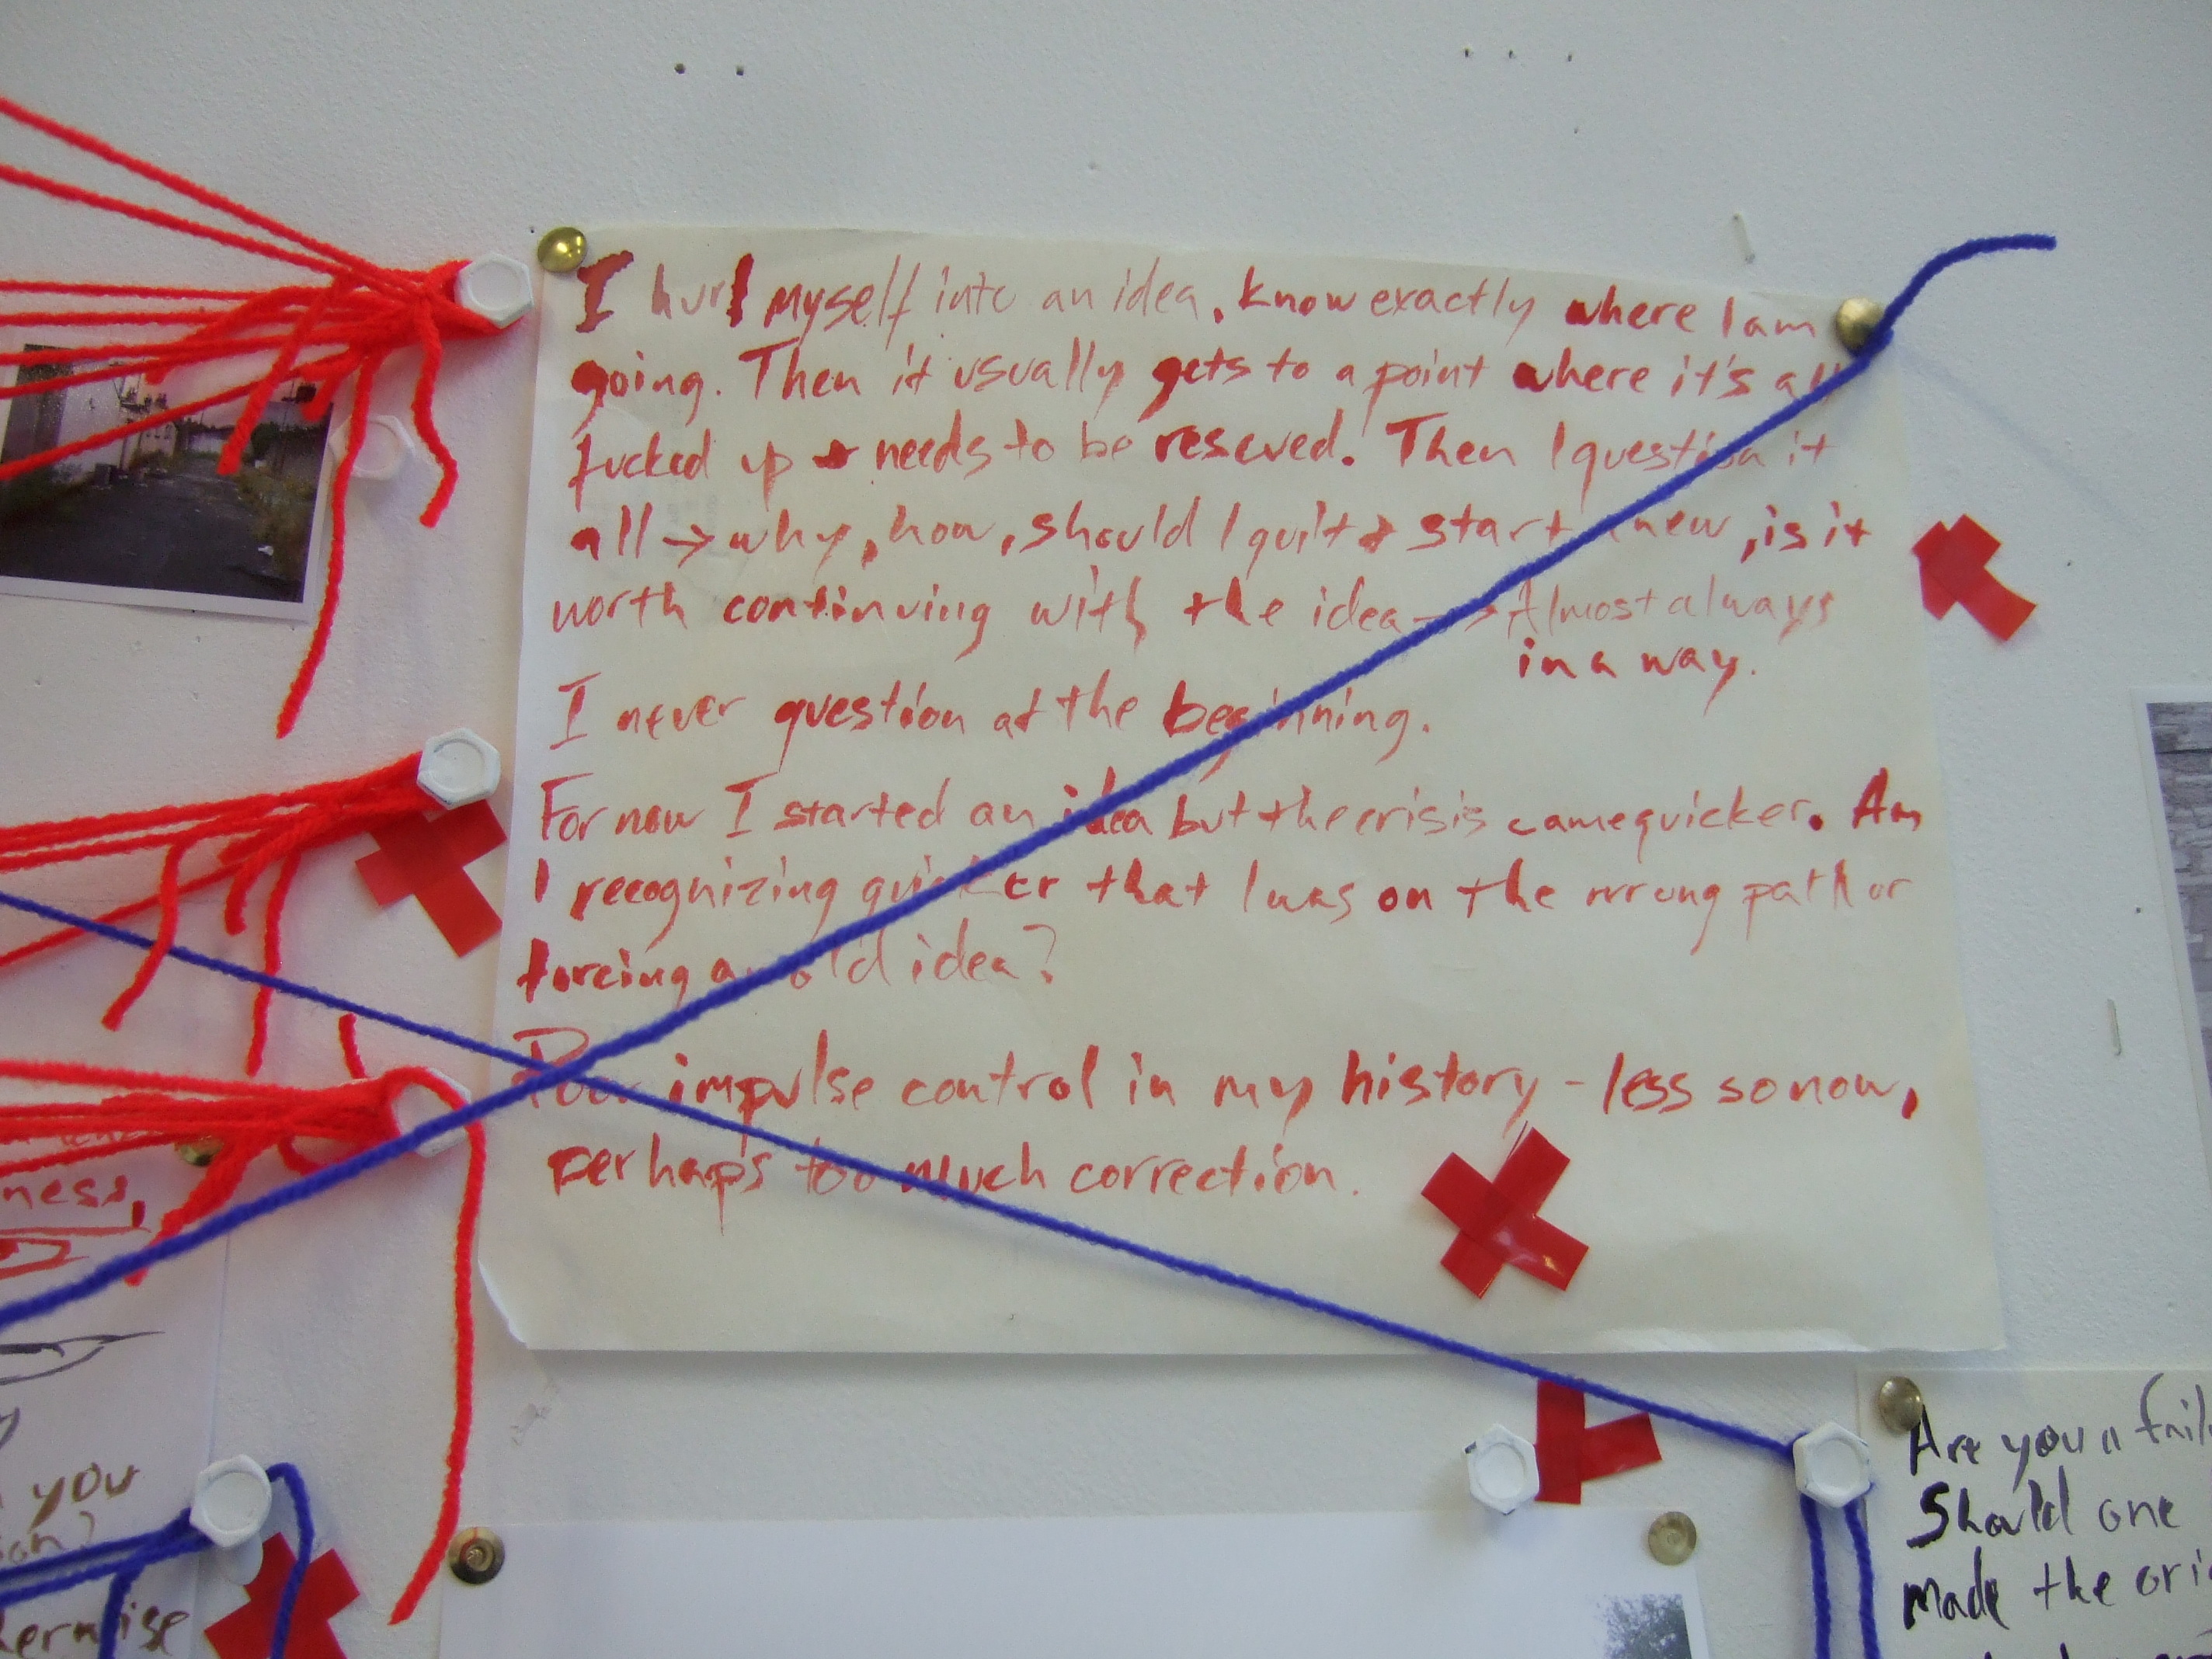 I hurl myself into an idea, know exactly where I am
going. Then it usually gets to a point where it's all
fucked up + needs to be rescved. Then I question it
all → why, how, should I quit + start anew, is it
worth continuing with the idea → Almost always
in a way.
I never question at the beginning.
For now I started an idea but the crisis came quicker. Am
I recognizing quicker that I was on the wrong path or
forcing an old idea?
Poor impulse control in my history - less so now,
perhaps too much correction.
ness,
you
Are you a
Should one
made the